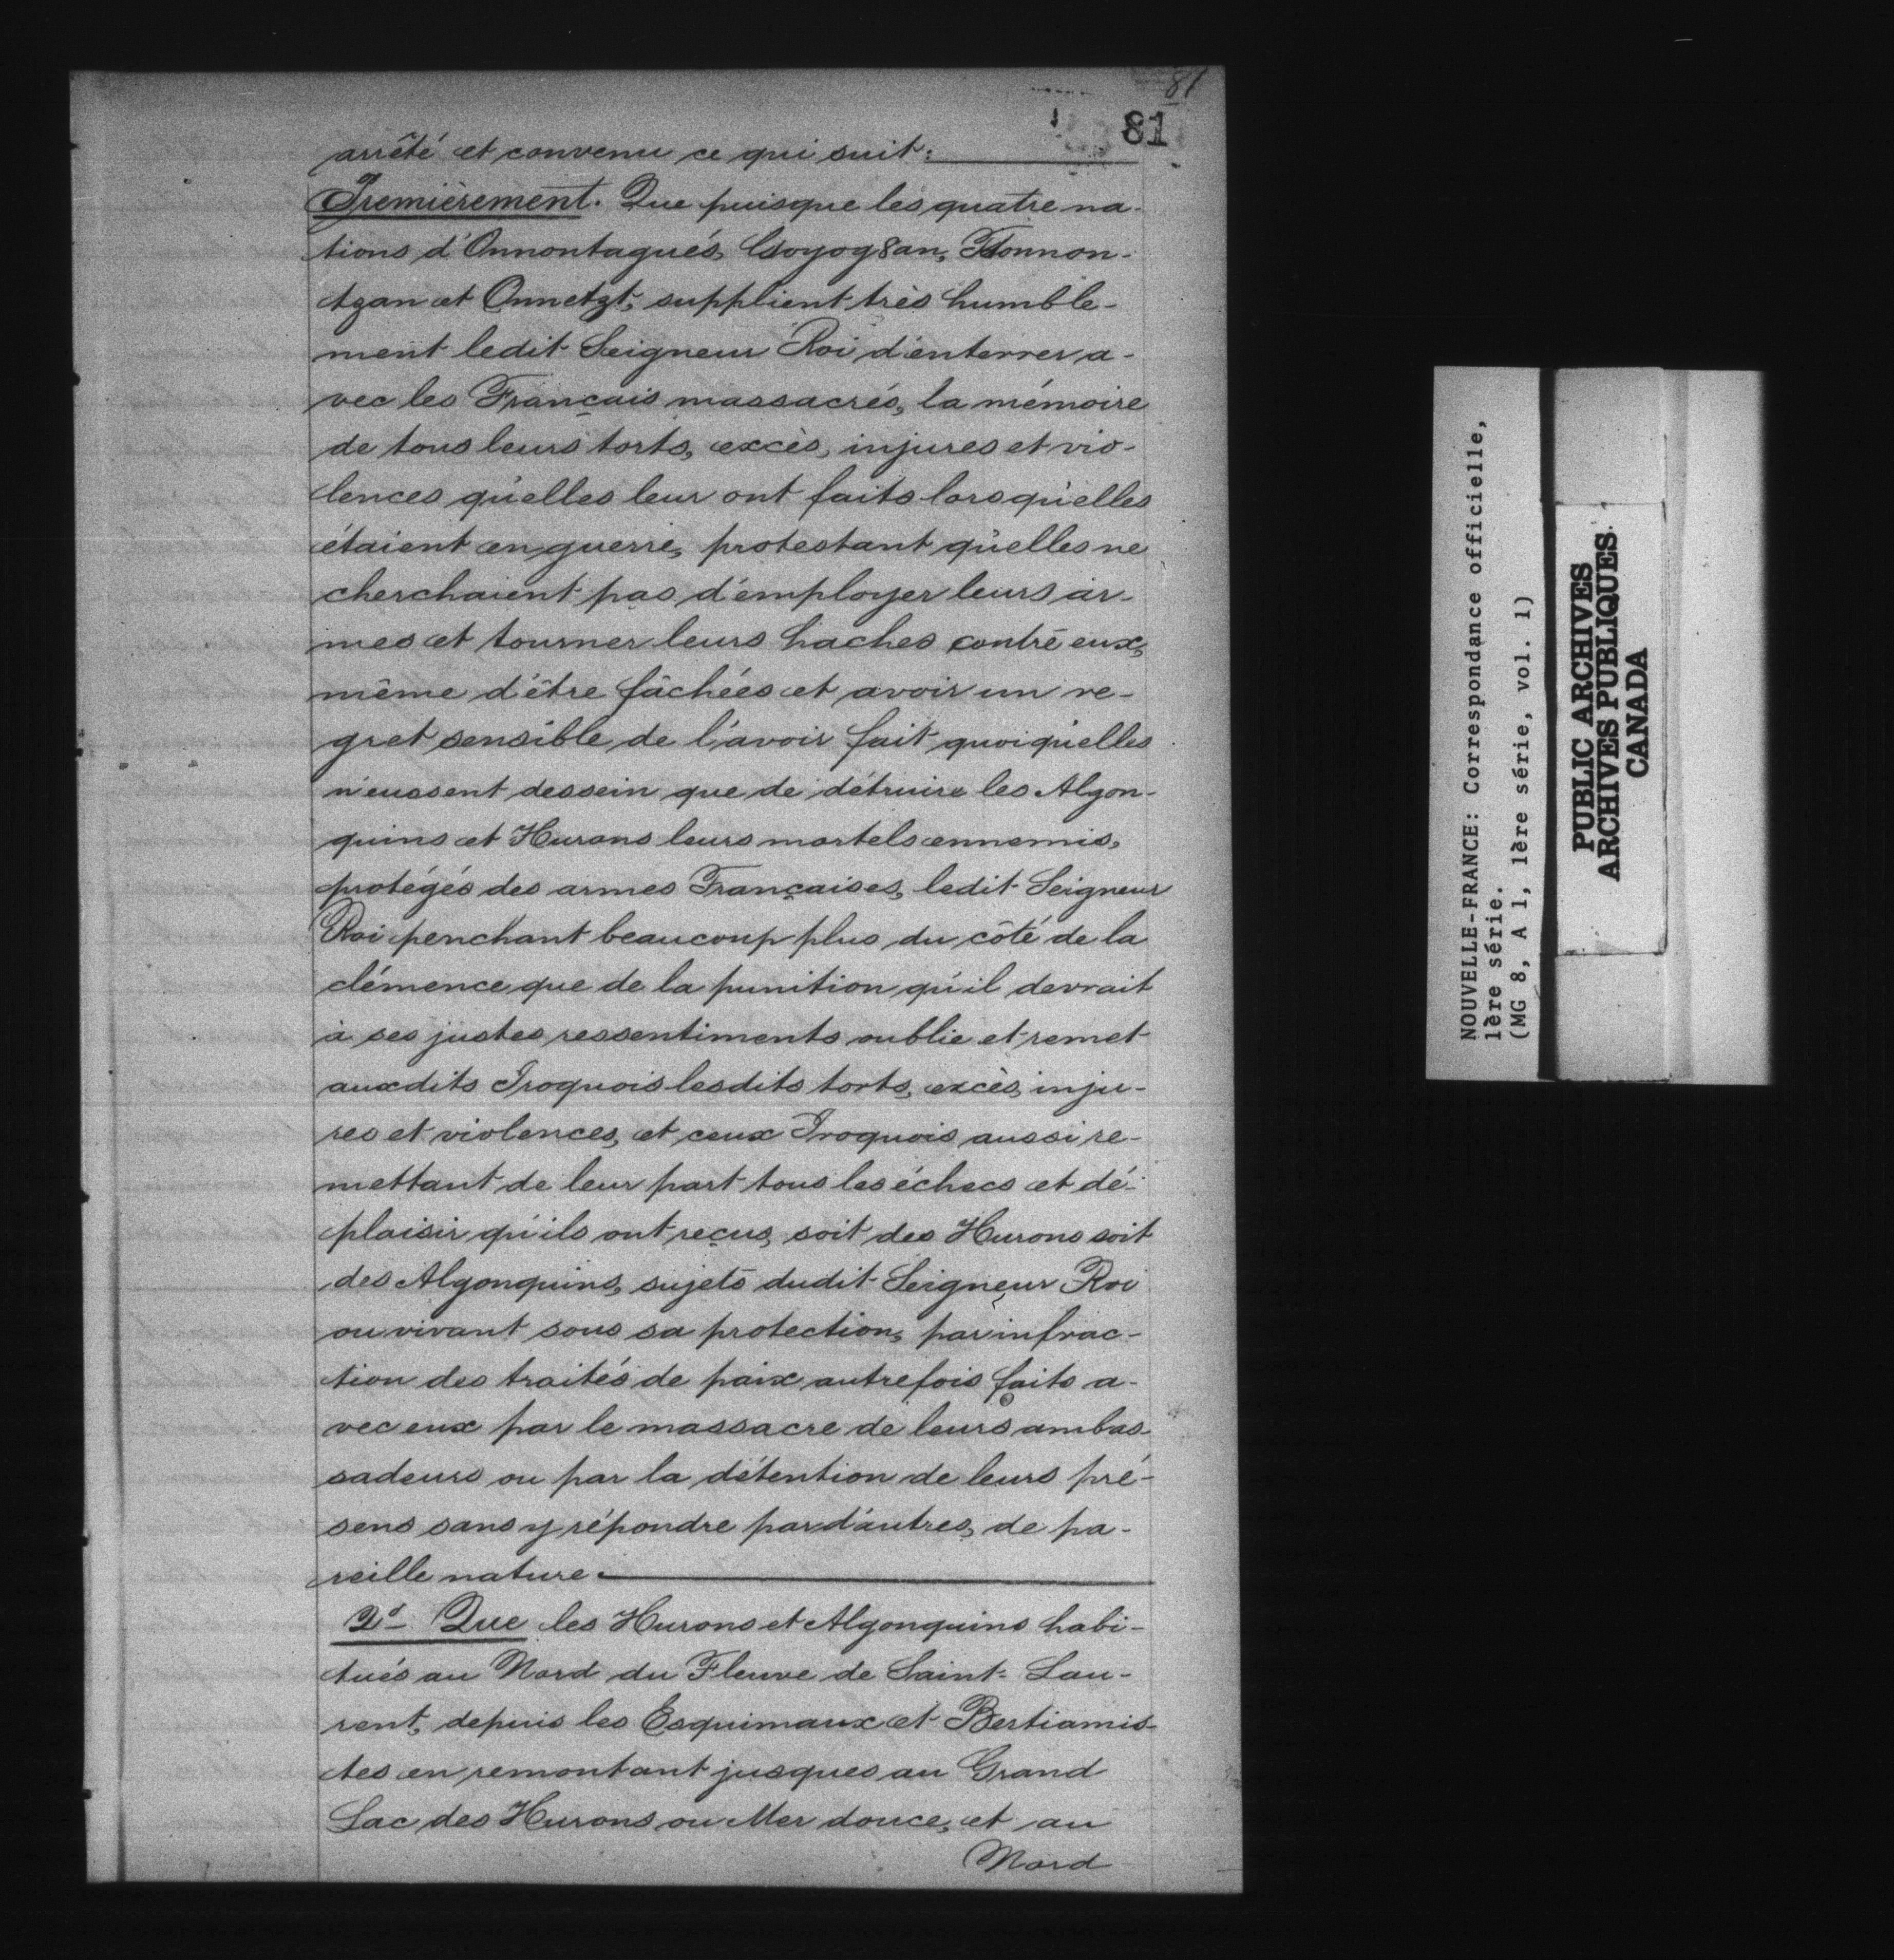 81
81
arrêté et convenu ce qui suit:
Premièrement. Que puisque les quatre na-
tions d'Onnontagués, Goyog8an, Tsonnon-
tgan et Onnetgt, supplient très humble-
ment ledit Seigneur Roi d'enterrer a-
vec les Français massacrés, la mémoire
de tous leurs torts, excès, injures et vio-
lences qu'elles leur ont faits lorsqu'elles
étaient en guerre, protestant qu'elles ne
cherchaient pas d'employer leurs ar-
mes et tourner leurs haches contre eux,
même d'être fâchées et avoir un re-
gret sensible de l'avoir fait quoiqu'elles
n'eussent dessein que de détruire les Algon-
quins et Hurons leurs mortels ennemis,
protégés des armes Françaises, ledit Seigneur
Roi penchant beaucoup plus du côté de la
clémence que de la punition qu'il devrait
à ses justes ressentiments oublie et remet
auxdits Iroquois lesdits torts, excès, inju-
res et violences, et ceux Iroquois aussi re-
mettant de leur part tous les échecs et dé-
plaisir qu'ils ont reçus, soit des Hurons soit
des Algonquins, sujets dudit Seigneur Roi
ou vivant sous sa protection, par infrac-
tion des traités de paix autrefois faits a-
vec eux par le massacre de leurs ambas-
sadeurs ou par la détention de leurs pré-
sens sans y répondre par d'autres, de pa-
reille nature.
2d- Que les Hurons et Algonquins habi-
tués au Nord du Fleuve de Saint-Lau-
rent, depuis les Esquimaux et Bertiamis-
tes en remontant jusques au Grand
Lac des Hurons ou Mer douce, et au
Nord
NOUVELLE-FRANCE: Correspondance officielle,
1ère série.
(MG 8, A 1, 1ère série, vol. 1)
PUBLIC ARCHIVES
ARCHIVES PUBLIQUES
CANADA